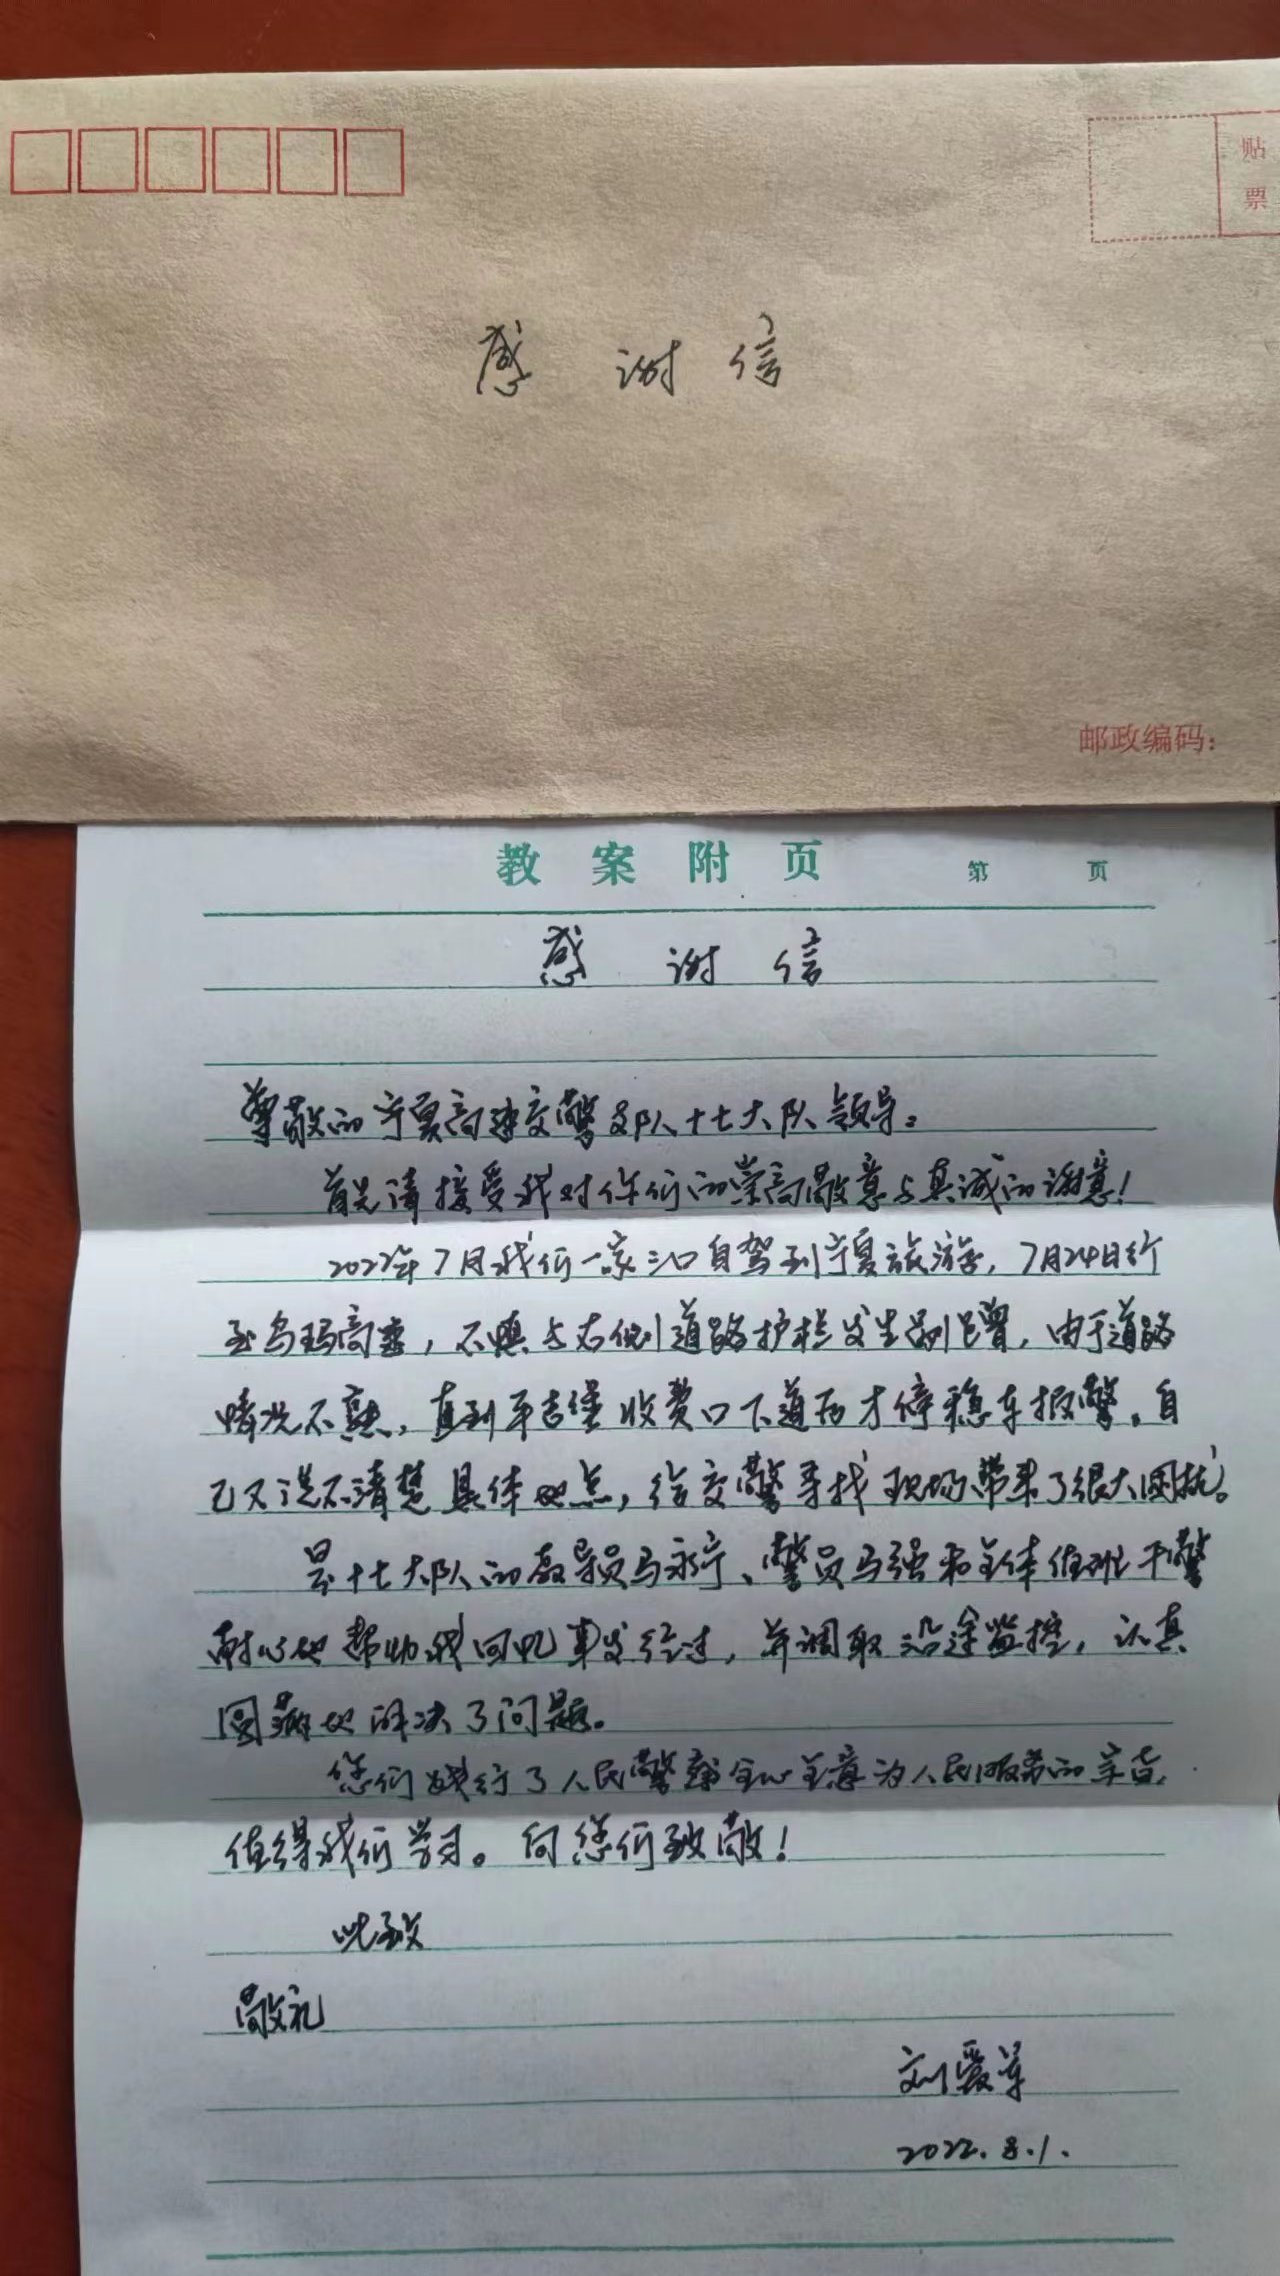 贴
票
感谢信
邮政编码：
教案附页 第 页
感谢信
尊敬的宁夏高速交警支队十七大队领导：
首先请接受我对你们的崇高敬意与真诚的谢意！
2022年7月我们一家三口自驾到宁夏旅游，7月24日行
至乌玛高速，不慎与右侧道路护栏发生剐蹭，由于道路
情况不熟，直到平吉堡收费口下道后才停稳车报警。自
己又说不清楚具体地点，给交警寻找现场带来了很大困扰。
是十七大队的教导员马永宁、警员马强和全体值班干警
耐心地帮助我回忆事发经过，并调取沿途监控，认真
圆满地解决了问题。
您们践行了人民警察全心全意为人民服务的宗旨，
值得我们学习。向您们致敬！
此致
敬礼
刘爱军
2022.8.1.